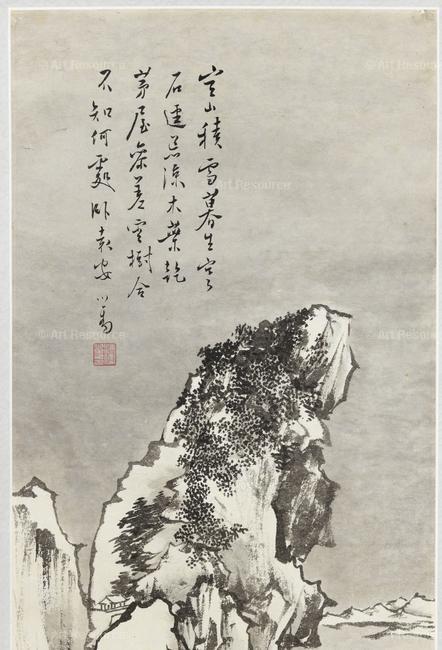 空山積雪暮生寒
石逕荒涼木葉乾
茅屋參差雲樹合
不知何處臥袁安 心畬
© Art Resource
© Art Resource
© Art Resource
© Art Resource
© Art Resource